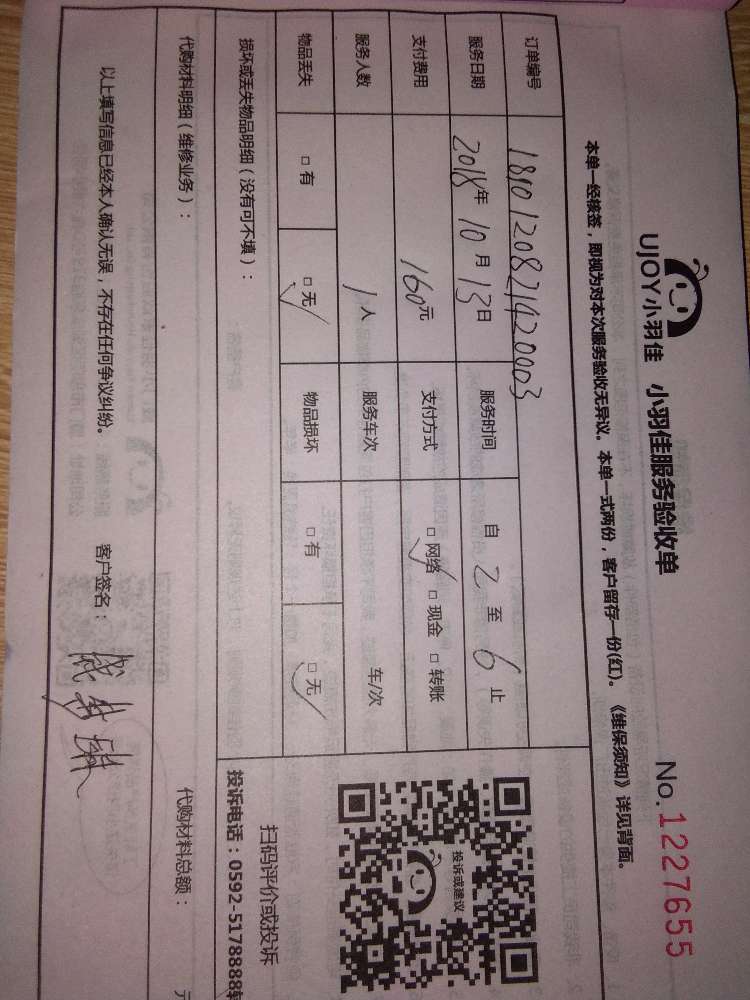 UJOY小羽佳 小羽佳服务验收单
No.1227655
本单一经核签,即视为对本次服务验收无异议。本单一式两份,客户留存一份(红)。《维保须知》详见背面。
订单编号 1810120821420003
服务日期 2018年10月13日 服务时间 自2至6止
支付费用 160元 支付方式 □网络✓ □现金 □转账
服务人数 1人 服务车次 车/次
物品丢失 □有 □无✓ 物品损坏 □有 □无✓
投诉或建议
扫码评价或投诉
投诉电话:0592-5178888转
损坏或丢失物品明细(没有可不填):
代购材料明细(维修业务): 代购材料总额:
以上填写信息已经本人确认无误,不存在任何争议纠纷。 客户签名: